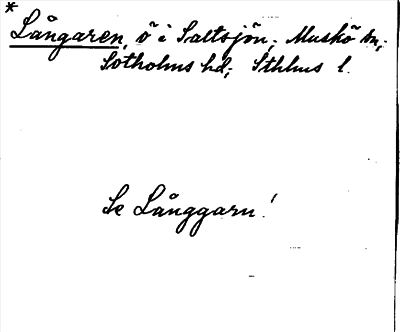 *
Långaren, ö i Saltsjön; Muskö sn;
Sotholms hd; Sthlms l.
Se Långgarn!